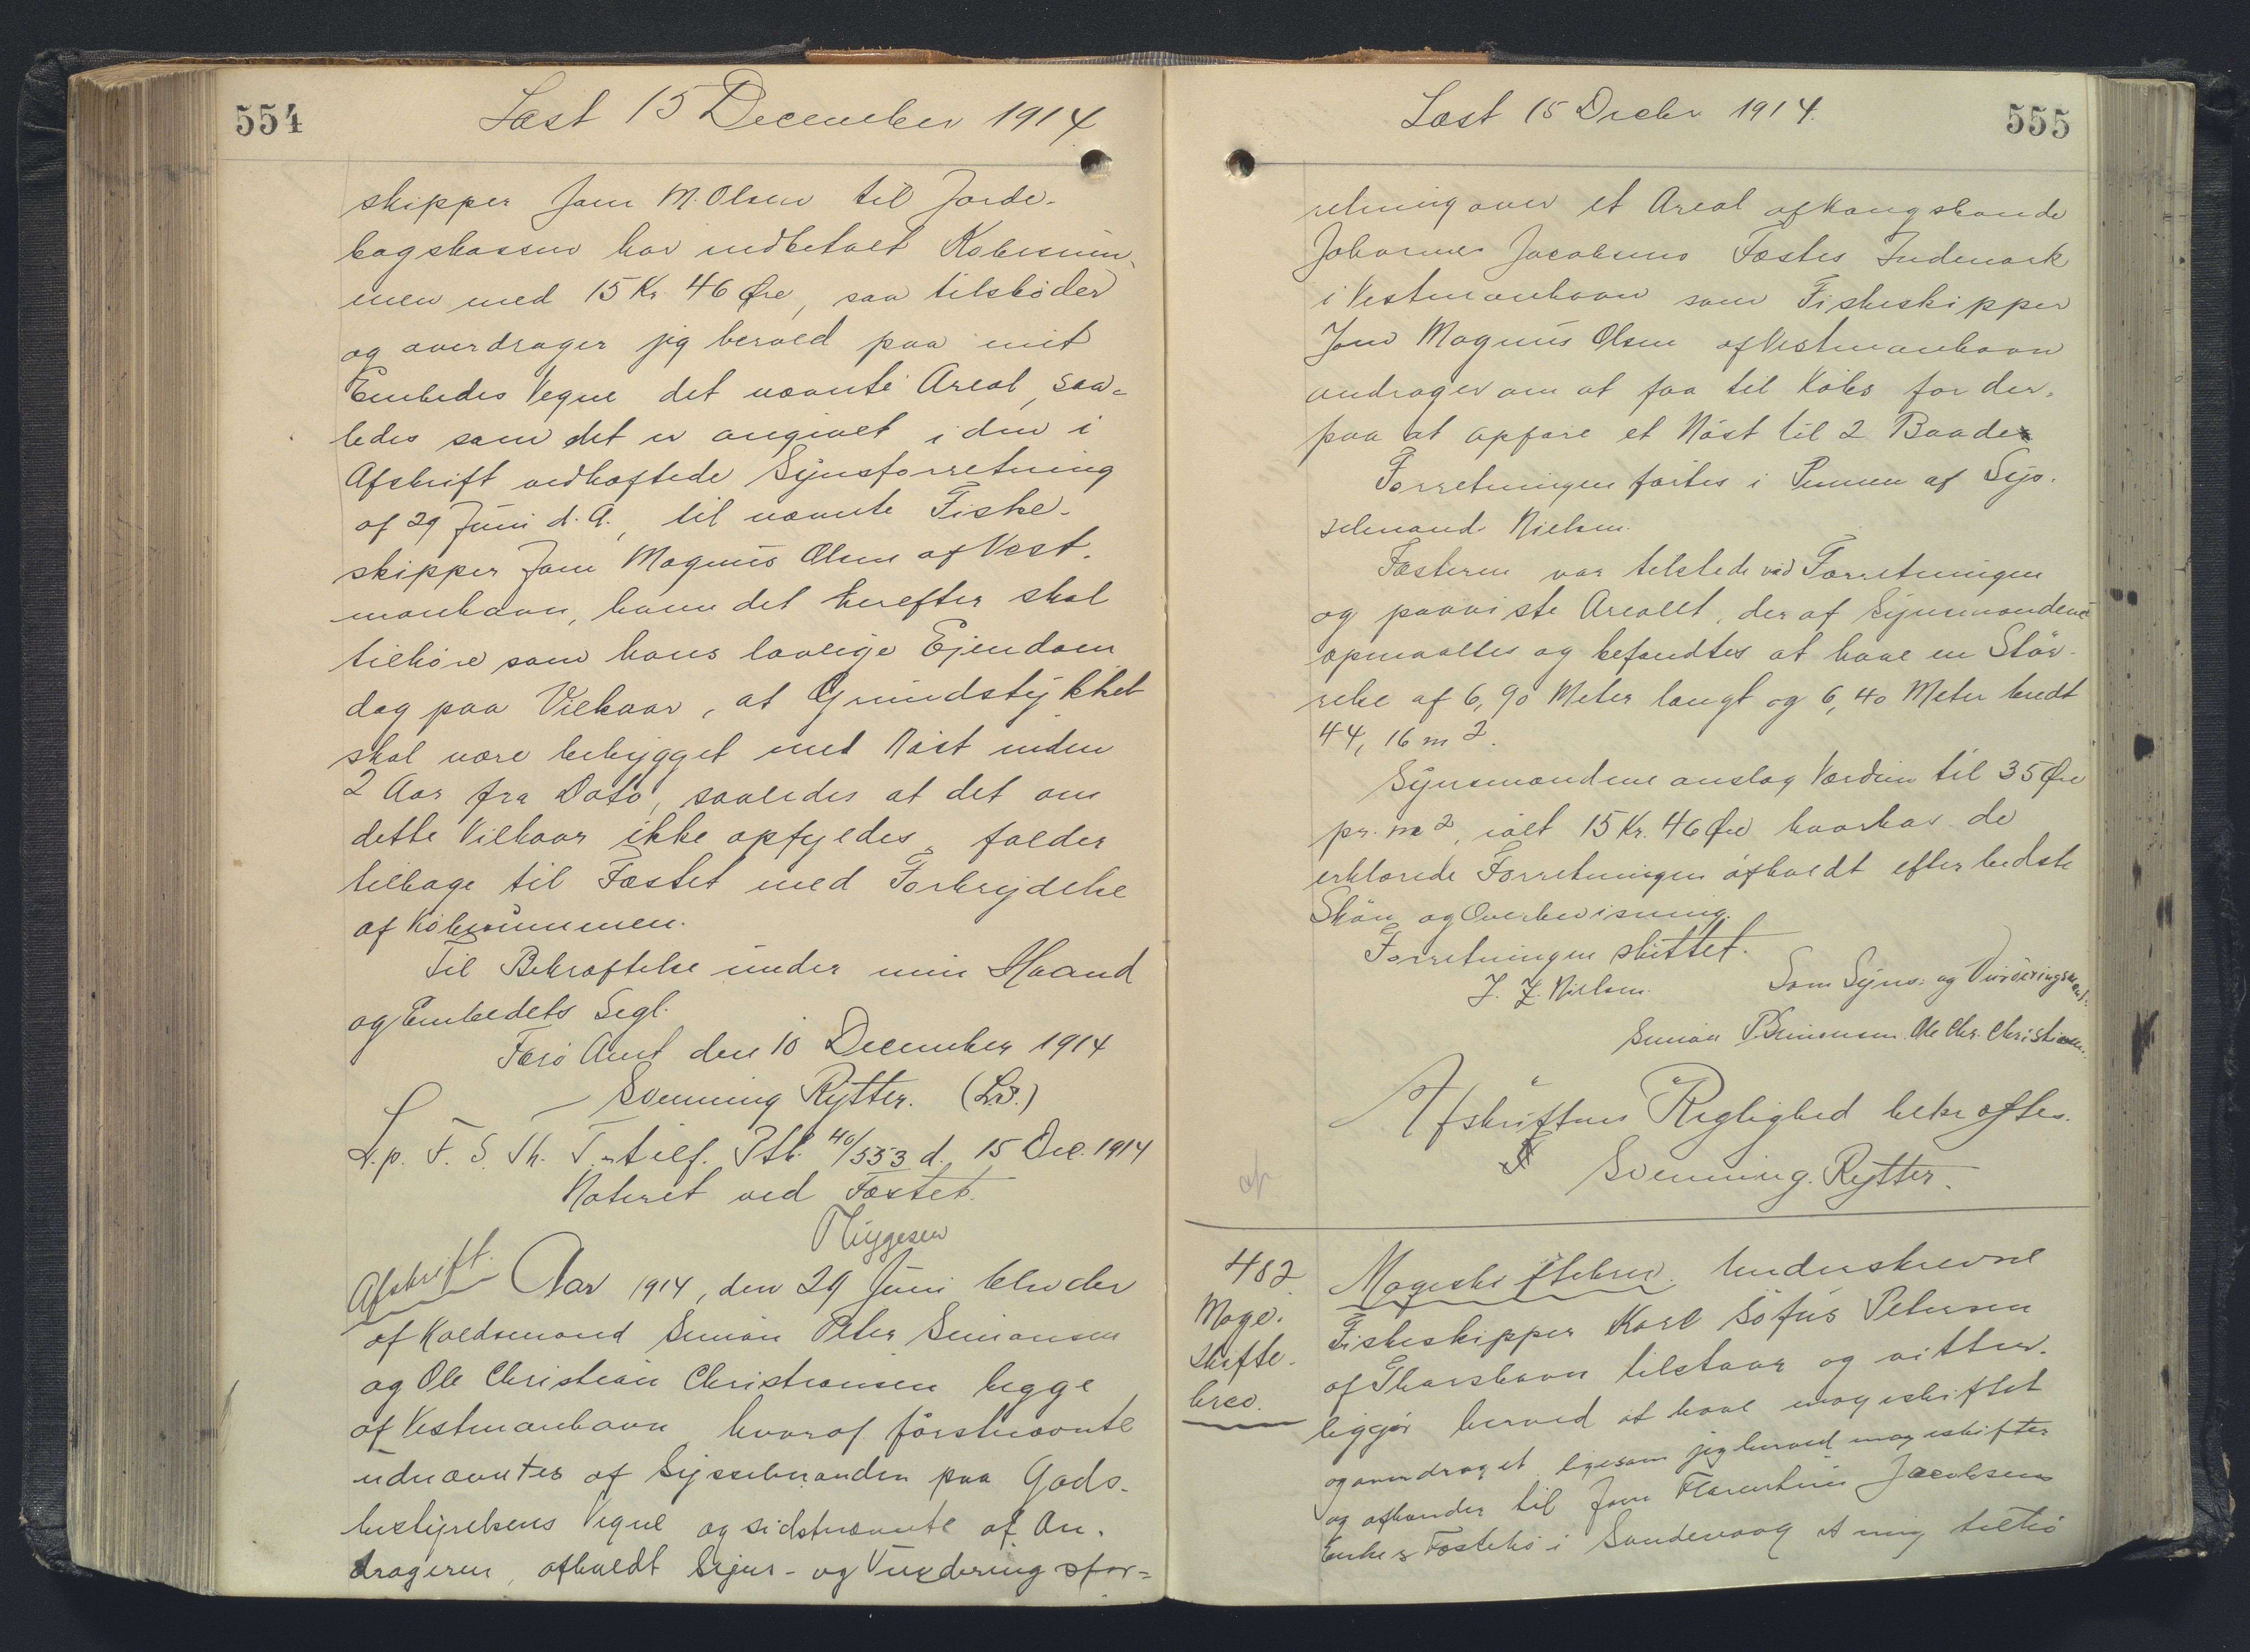 554
Læst 15 December 1914
skipper Jom M. Olsen til Jorde-
bogskassen har indbetalt Købesum-
men med 15 Kr. 46 Øre, saa tilskøder
og overdrager jeg herved paa mit
Embedes Vegne det nævnte Areal, saa=
ledes som det er angivet i den i
Afskrift vedhæftede Synsforretning
af 29 Juni d. A., til nævnte Fiske-
skipper Jom Magnus Olsen af Vest-
manhavn, ham det herefter skal
tilhøre som hans lovlige Ejendom
dog paa Vilkaar, at Grundstykket
skal være bebygget med Nöst inden
2 Aar fra Dato, saaledes at det om
dette Vilkaar ikke opfyldes, falder
tilbage til Fæstet med Forbrydelse
af Købesummen.
Til Bekræftelse under min Haand
og Embedets Segl.
Færö Amt den 10 December 1914
Svenning Rytter. (L.S.)
L. p. F. S. Th. T. tilf. Ptb. 40/553 d. 15 Dec. 1914
Noteret ved Fæstet.
Afskrift. Aar 1914, den 29 Juni blev der
af Koldsmænd Simon Peter Simonsen
og Ole Christian Christiansen begge
af Vestmanhavn hvoraf förstnævnte
udnævntes af Sysselmanden paa Gods-
bestyrelsens Vegne og sidstnævnte af An-
drageren, afholdt Syns- og Vurderingsfor=
Læst 15 Decbr 1914.
555
retning over et Areal af Kongsbonde
Johannes Jacobsens Fæstes Indmark
i Vestmanhavn som Fiskeskipper
Jom Magnus Olsen af Vestmanhavn
andrager om at faa til Købs for der-
paa at opføre et Nöst til 2 Baade
Forretningen førtes i Pennen af Sys-
selmand Nielsen.
Fæsteren var tilstede ved Forretningen
og paaviste Arealet, der af Synsmændene
opmaaltes og befandtes at have en Stör-
relse af 6,90 Meter langt og 6,40 Meter bredt
44,16 m2.
Synsmændene anslog Værdien til 35 Øre
pr. m2, ialt 15 Kr. 46 Øre hvorhos de
erklærede Forretningen afholdt efter bedste
Skön og Overbevisning.
Forretningen sluttet.
J. Z. Nielsen. Som Syns- og Vurderingsmænd:
Simon P. Simonsen. Ole Chr. Christiansen.
Afskriftens Rigtighed bekræftes.
Svenning Rytter.
482
Mage-
skifte-
brev.
Mageskiftebrev. Underskrevne
Fiskeskipper Karl Sofus Petersen
af Thorshavn tilstaar og vitter-
liggjør herved at have mageskiftet
og overdraget, ligesom jeg herved mageskifter
og afhænder til Jom Florentius Jacobsens
Enkes Fæstebo i Sandevaag et mig tilhø